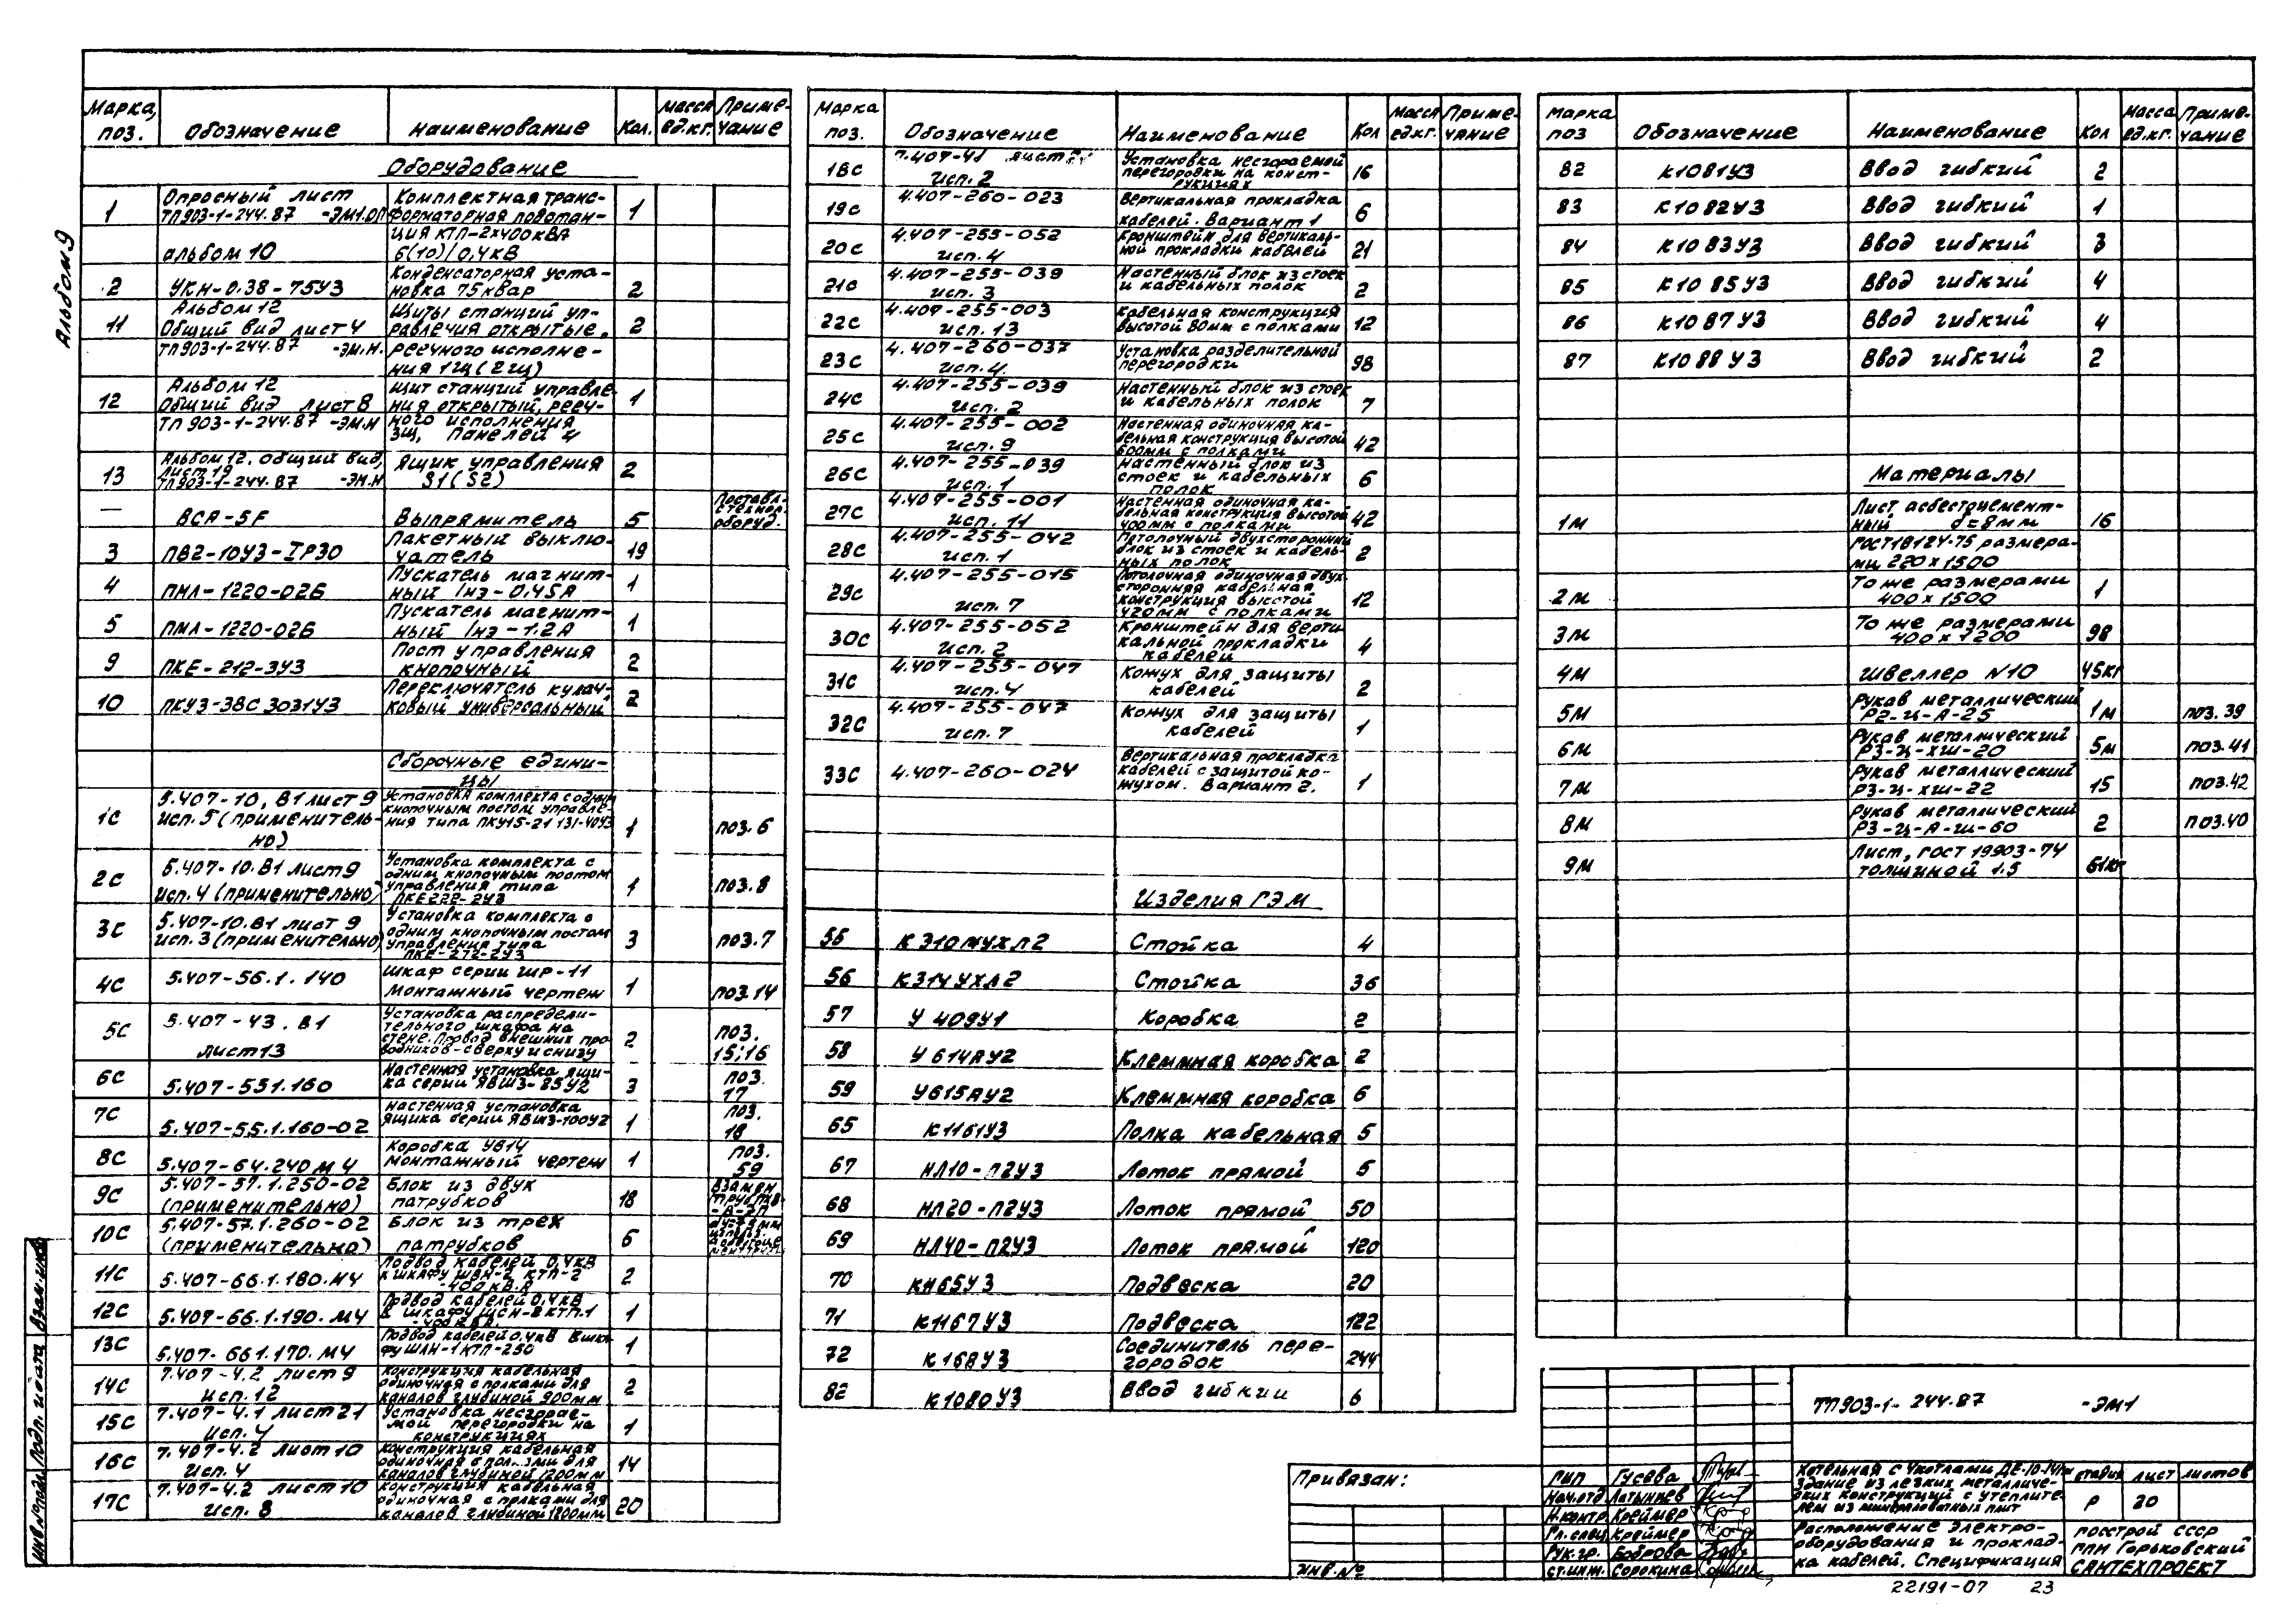 Альбом 9
Марка, поз. Обозначение Наименование Кол. Масса ед.кг. Примечание
Оборудование
1 Опросный лист ТП903-1-244.87 -ЭМ1.ОП альбом 10 Комплектная трансформаторная подстанция КТП-2х400кВА 6(10)/0,4кВ 1
2 УКН-0.38-75У3 Конденсаторная установка 75квар 2
11 Альбом 12 Общий вид лист 4 ТП903-1-244.87 -ЭМ.Н. Щиты станций управления открытые, реечного исполнения 1щ(2щ) 2
12 Альбом 12 Общий вид лист 8 ТП903-1-244.87 -ЭМ.Н Щит станций управления открытый, реечного исполнения 3щ, панелей 4 1
13 Альбом 12. Общий вид, лист 19 ТП903-1-244.87 -ЭМ.Н Ящик управления S1(S2) 2
— ВСА-5Р Выпрямитель 5 Поставл. с технол. оборуд.
3 ПВ2-10У3-IP30 Пакетный выключатель 19
4 ПМЛ-1220-02Б Пускатель магнитный Iнэ-0,45А 1
5 ПМЛ-1220-02Б Пускатель магнитный Iнэ-1.2А 1
9 ПКЕ-212-3У3 Пост управления кнопочный 2
10 ПКУ3-38С3031У3 Переключатель кулачковый универсальный 2
Сборочные единицы
1С 5.407-10, В1 лист 9 исп. 5 (применительно) Установка комплекта с одним кнопочным постом управления типа ПКУ15-21 131-40У3 1 поз.6
2С 5.407-10.В1 лист 9 исп. 4 (применительно) Установка комплекта с одним кнопочным постом управления типа ПКЕ222-2У3 1 поз.8
3С 5.407-10.В1 лист 9 исп. 3 (применительно) Установка комплекта с одним кнопочным постом управления типа ПКЕ-272-2У3 3 поз.7
4С 5.407-56.1.140 Шкаф серии ШР-11 Монтажный чертеж 1 поз.14
5С 5.407-43.В1 лист 13 Установка распределительного шкафа на стене. Подвод внешних проводников-сверху и снизу 2 поз. 15;16
6С 5.407-551.160 Настенная установка ящика серии ЯВШ3-25У2 3 поз. 17
7С 5.407-55.1.160-02 Настенная установка ящика серии ЯВШ3-100У2 1 поз. 18
8С 5.407-64.240М4 Коробка У614 монтажный чертеж 1 поз. 59
9С 5.407-57.1.250-02 (применительно) Блок из двух патрубков 18 Взамен
10С 5.407-57.1.260-02 (применительно) Блок из трех патрубков 6
11С 5.407-66.1.180.М4 Подвод кабелей 0,4кВ к шкафу ШВН-2 КТП-2 -400кВ.А 2
12С 5.407-66.1.190.М4 Подвод кабелей 0.4кВ к шкафу ШСН-8 КТП.1 1
13С 5.407-661.170.М4 Подвод кабелей 0.4кВ к шкафу ШЛН-1КТП-250 1
14С 7.407-4.2 лист 9 исп. 12 Конструкция кабельная одиночная с полками для каналов глубиной 900мм 2
15С 7.407-4.1 лист 21 исп. 4 Установка несгораемой перегородки на конструкциях 1
16С 7.407-4.2 лист 10 исп. 4 Конструкция кабельная одиночная с полками для каналов глубиной 1200мм 14
17С 7.407-4.2 лист 10 исп. 8 Конструкция кабельная одиночная с полками для каналов глубиной 1200мм 20
Марка поз. Обозначение Наименование Кол Масса ед.кг. Примечание
18С 7.407-41 лист исп. 2 Установка несгораемой перегородки на конструкциях 16
19С 4.407-260-023 Вертикальная прокладка кабелей. Вариант 1 6
20С 4.407-255-052 исп. 4 Кронштейн для вертикальной прокладки кабелей 21
21С 4.407-255-039 исп. 3 Настенный блок из стоек и кабельных полок 2
22С 4.407-255-003 исп. 13 Кабельная конструкция высотой 80мм с полками 12
23С 4.407-260-037 исп. 4. Установка разделительной перегородки 98
24С 4.407-255-039 исп. 2 Настенный блок из стоек и кабельных полок 7
25С 4.407-255-002 исп. 9 Настенная одиночная кабельная конструкция высотой 600мм с полками 42
26С 4.407-255-039 исп. 1 Настенный блок из стоек и кабельных полок 6
27С 4.407-255-001 исп. 11 Настенная одиночная кабельная конструкция высотой 400мм с полками 42
28С 4.407-255-042 исп. 1 Потолочный двухсторонний блок из стоек и кабельных полок 2
29С 4.407-255-015 исп. 7 Потолочная одиночная двухсторонняя кабельная конструкция высотой 420мм с полками 12
30С 4.407-255-052 исп. 2 Кронштейн для вертикальной прокладки кабелей 4
31С 4.407-255-047 исп. 4 Кожух для защиты кабелей 2
32С 4.407-255-047 исп. 7 Кожух для защиты кабелей 1
33С 4.407-260-024 Вертикальная прокладка кабелей с защитой кожухом. Вариант 2. 1
Изделия ГЭМ
55 К310МУХЛ2 Стойка 4
56 К314УХЛ2 Стойка 36
57 У409У1 Коробка 2
58 У614АУ2 Клеммная коробка 2
59 У615АУ2 Клеммная коробка 6
65 К1161У3 Полка кабельная 5
67 НЛ10-П2У3 Лоток прямой 5
68 НЛ20-П2У3 Лоток прямой 50
69 НЛ40-П2У3 Лоток прямой 120
70 КН65У3 Подвеска 20
71 К1167У3 Подвеска 122
72 К168У3 Соединитель перегородок 244
82 К1080У3 Ввод гибкий 6
Марка поз Обозначение Наименование Кол Масса ед.кг. Примечание
82 К1081У3 Ввод гибкий 2
83 К1082У3 Ввод гибкий 1
84 К1083У3 Ввод гибкий 3
85 К1085У3 Ввод гибкий 4
86 К1087У3 Ввод гибкий 4
87 К1088У3 Ввод гибкий 2
Материалы
1М Лист асбестцементный δ=8мм ГОСТ18124-75 размерами 220х1500 16
2М То же размерами 400х1500 1
3М То же размерами 400х1200 98
4М Швеллер N10 45кг
5М Рукав металлический Р2-Ц-А-25 1м поз.39
6М Рукав металлический Р3-Ц-ХШ-20 5м поз.41
7М Рукав металлический Р3-Ц-ХШ-22 15 поз.42
8М Рукав металлический Р3-Ц-А-Ш-60 2 поз.40
9М Лист, ГОСТ 19903-74 толщиной 1.5 61кг
ТП903-1-244.87 -ЭМ1
Привязан:
Инв.№
ГИП Гусева
Нач.отд. Латышев
Н.контр. Креймер
Гл.спец. Креймер
Рук.гр. Боброва
Ст.инж. Сорокина
Котельная с 4 котлами ДЕ-10-14гм Здание из легких металлических конструкций с утеплителем из минераловатных плит
Стадия Лист Листов
Р 20
Расположение электрооборудования и прокладка кабелей. Спецификация
Госстрой СССР
ГПИ Горьковский
САНТЕХПРОЕКТ
22191-07 23
Инв.№подл. Подп. и дата Взам.инв